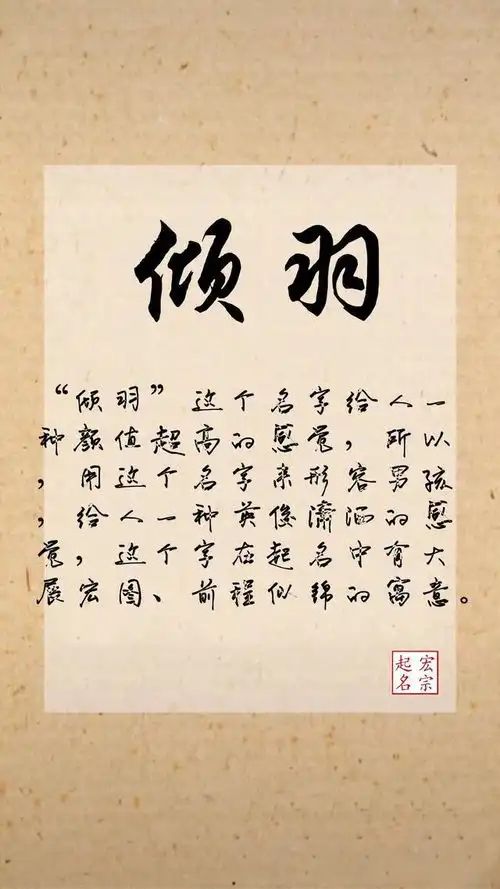 倾羽
“倾羽”这个名字给人一
种颜值超高的感觉，所以
，用这个名字来形容男孩
，给人一种英俊潇洒的感
觉，这个字在起名中有大
展宏图、前程似锦的寓意。
宏宗
起名